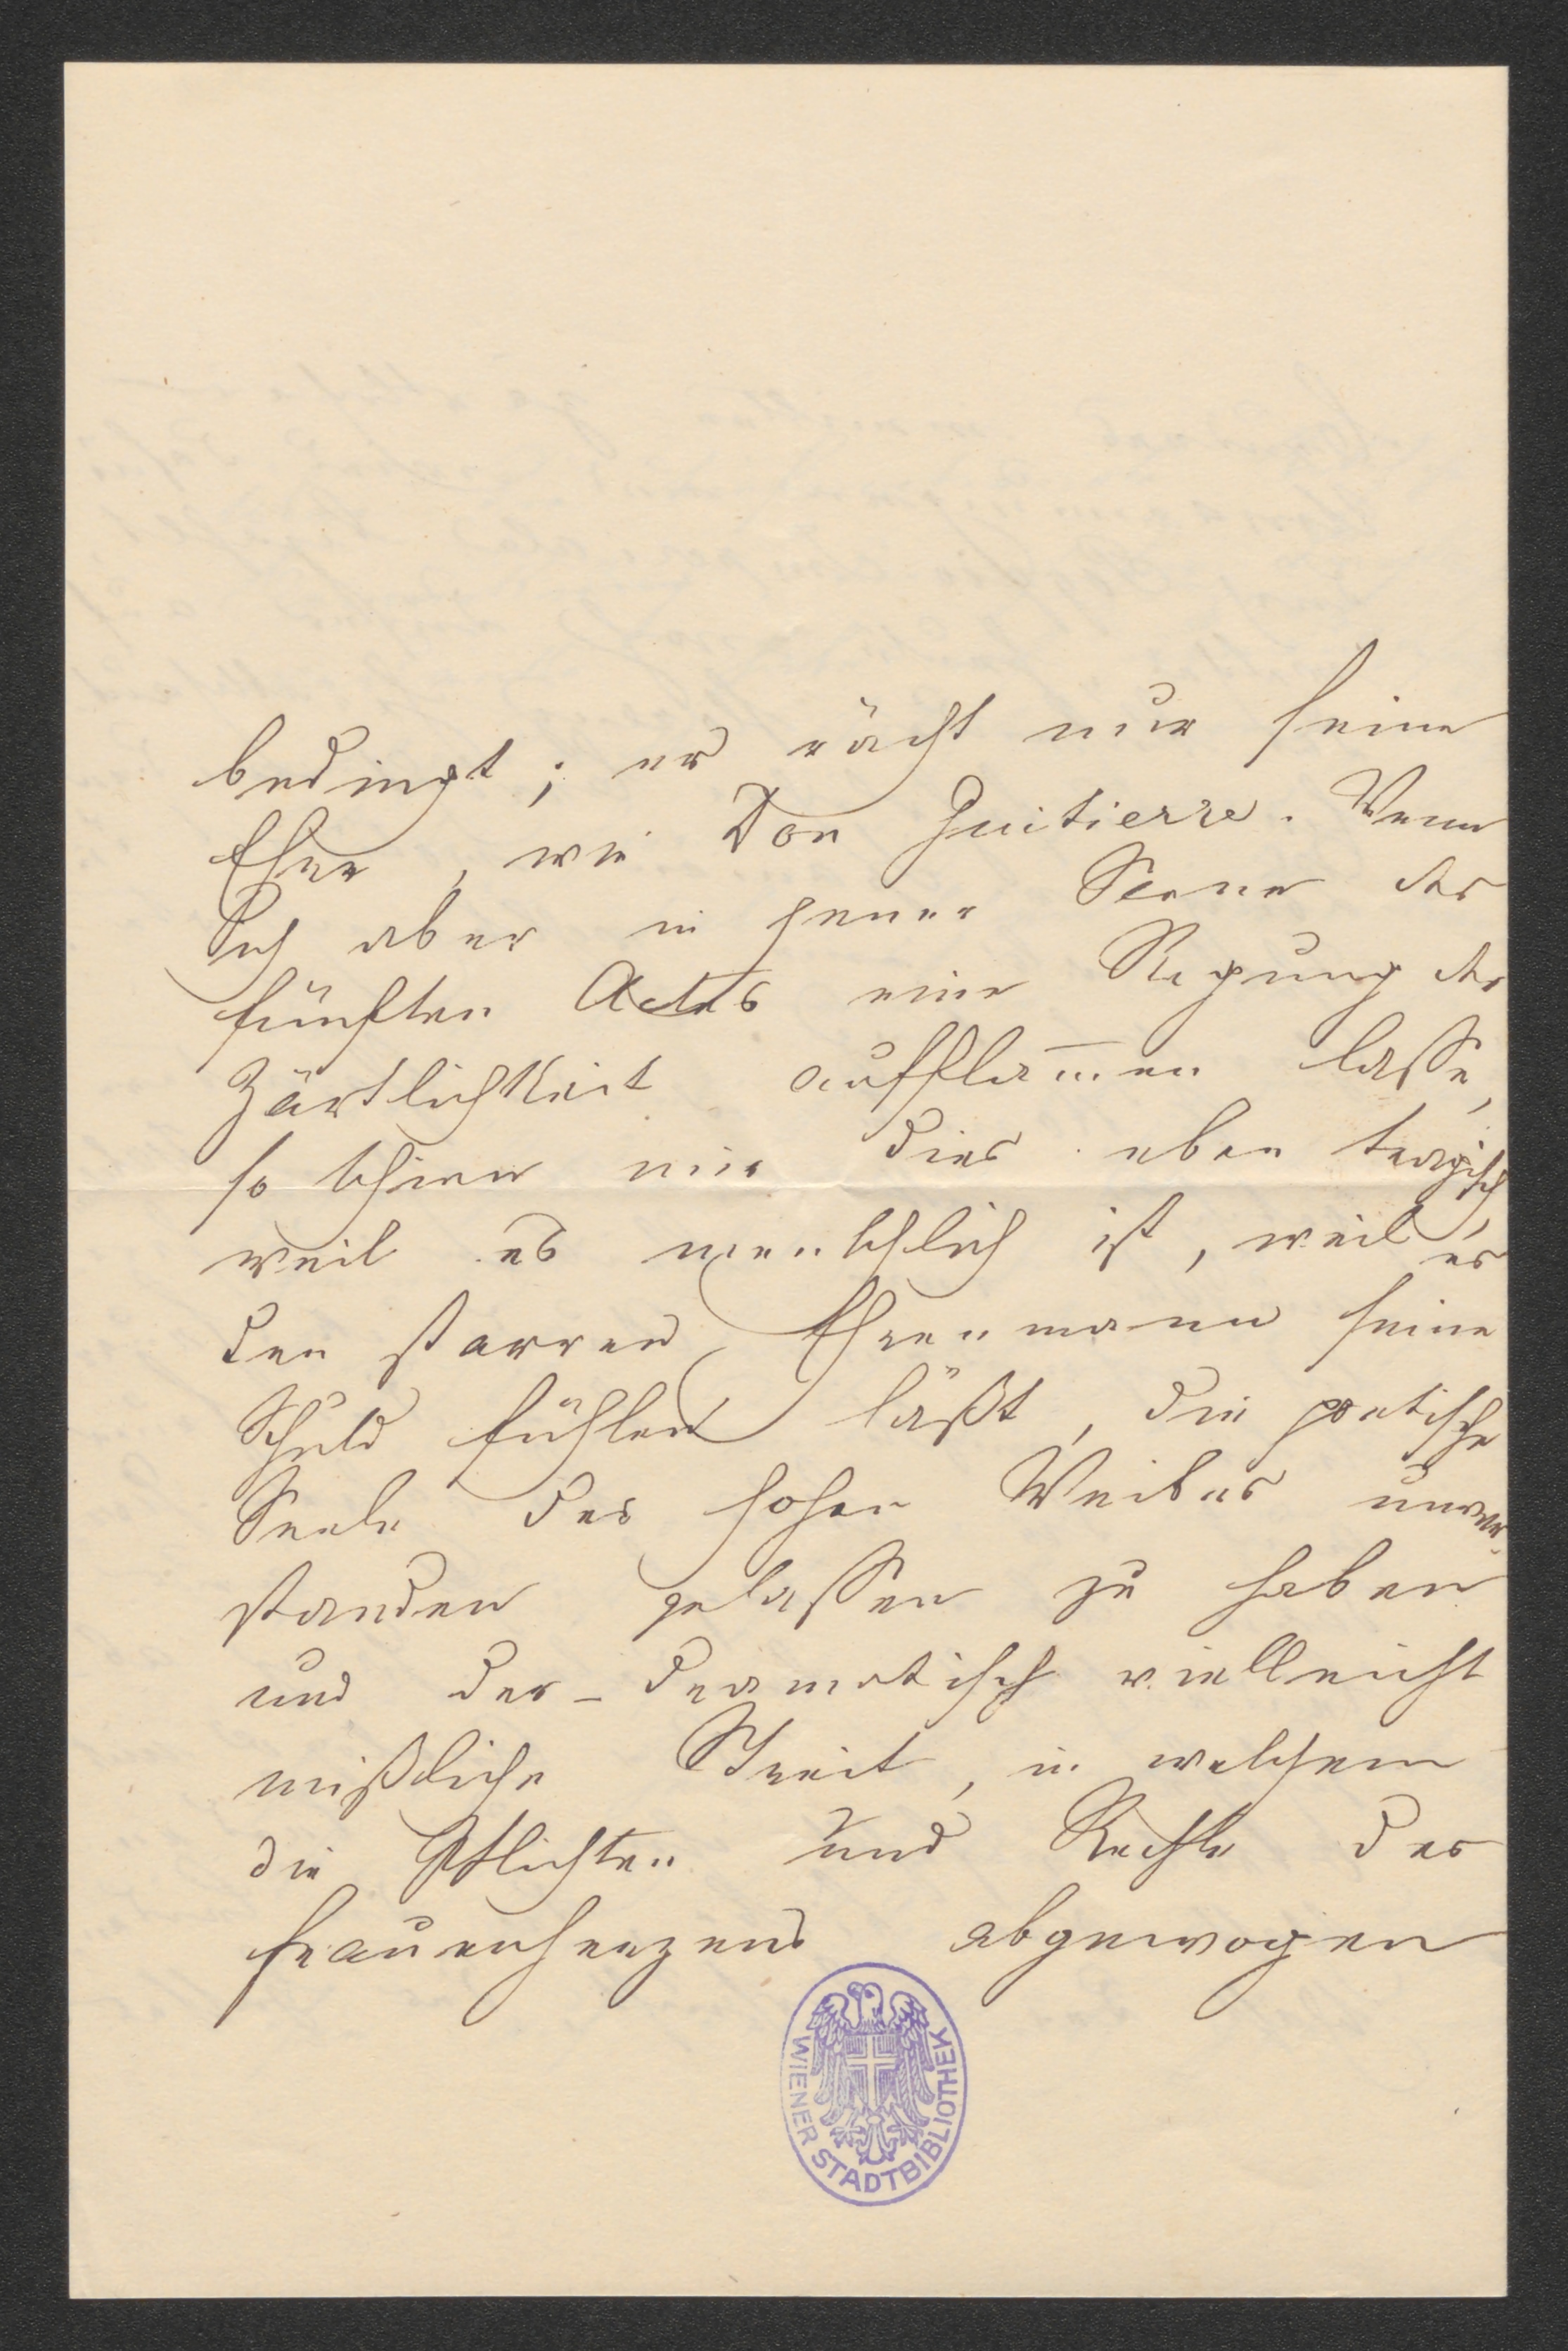 bedingt; er rächt nur seine
Ehre, wie Don Guitierre. Wenn
Sich aber in jener Scene des
fünften Actes eine Regung der
Zärtlichkeit aufflam̄en lasse,
so schien mir dies eben tragisch,
weil es menschlich ist, weil es
den starren Ehrenmann seine
Schuld fühlen läßt, die poetische
Seele des hohen Weibes unver-
standen gelassen zu haben
und der – dramatisch vielleicht
mißliche Streit, in welchem
die Pflichten und Rechte des
Frauenherzens abgewogen
WIENER STADTBIBLIOTHEK